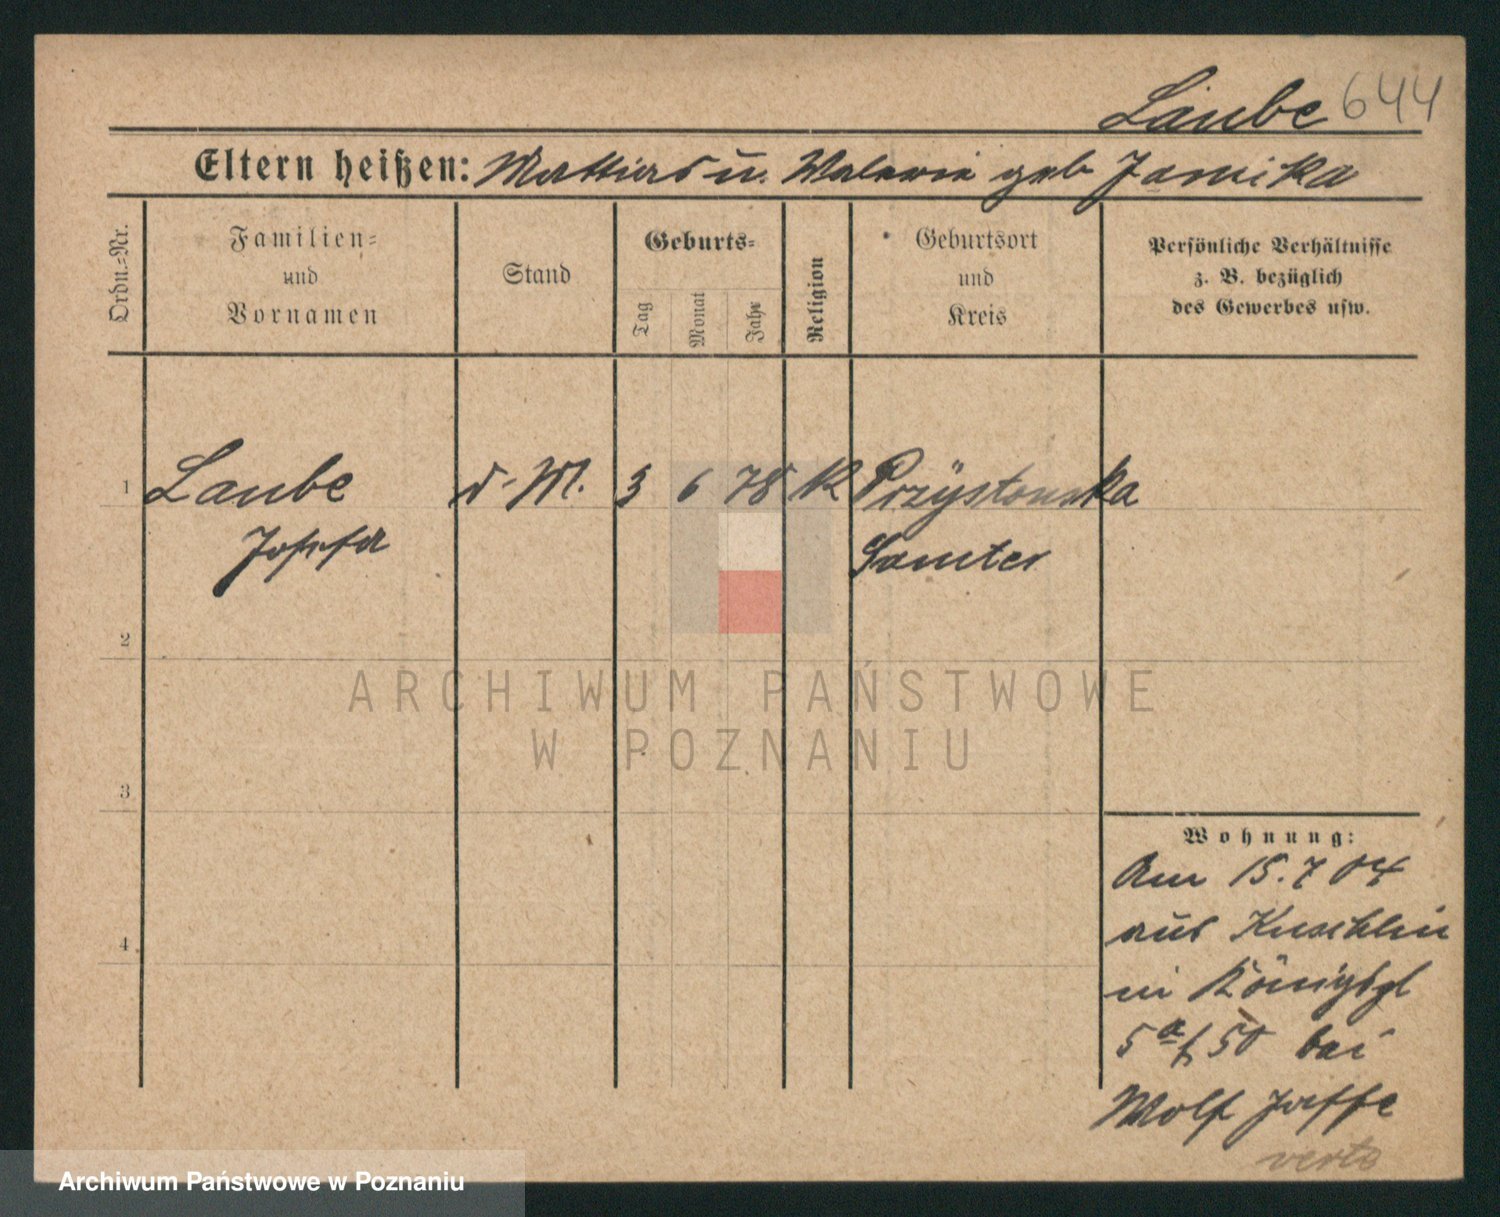 Laube 644
Eltern heißen: Mattias u. Valerie geb Jamika
Ordn.-Nr.
Familien-
und
Vornamen
Stand
Geburts-
Tag
Monat
Jahr
Religion
Geburtsort
und
Kreis
Persönliche Verhältnisse
z. B. bezüglich
des Gewerbes usw.
1 Laube d. M. 3 6 78 K Przÿstanka
Josefa Samter
2
3
4
Wohnung:
Am 15.7 04
aus Kuschlin
in Königsgl
5a f 50 bei
Wolf Jaffe
verte
ARCHIWUM PAŃSTWOWE
W POZNANIU
Archiwum Państwowe w Poznaniu